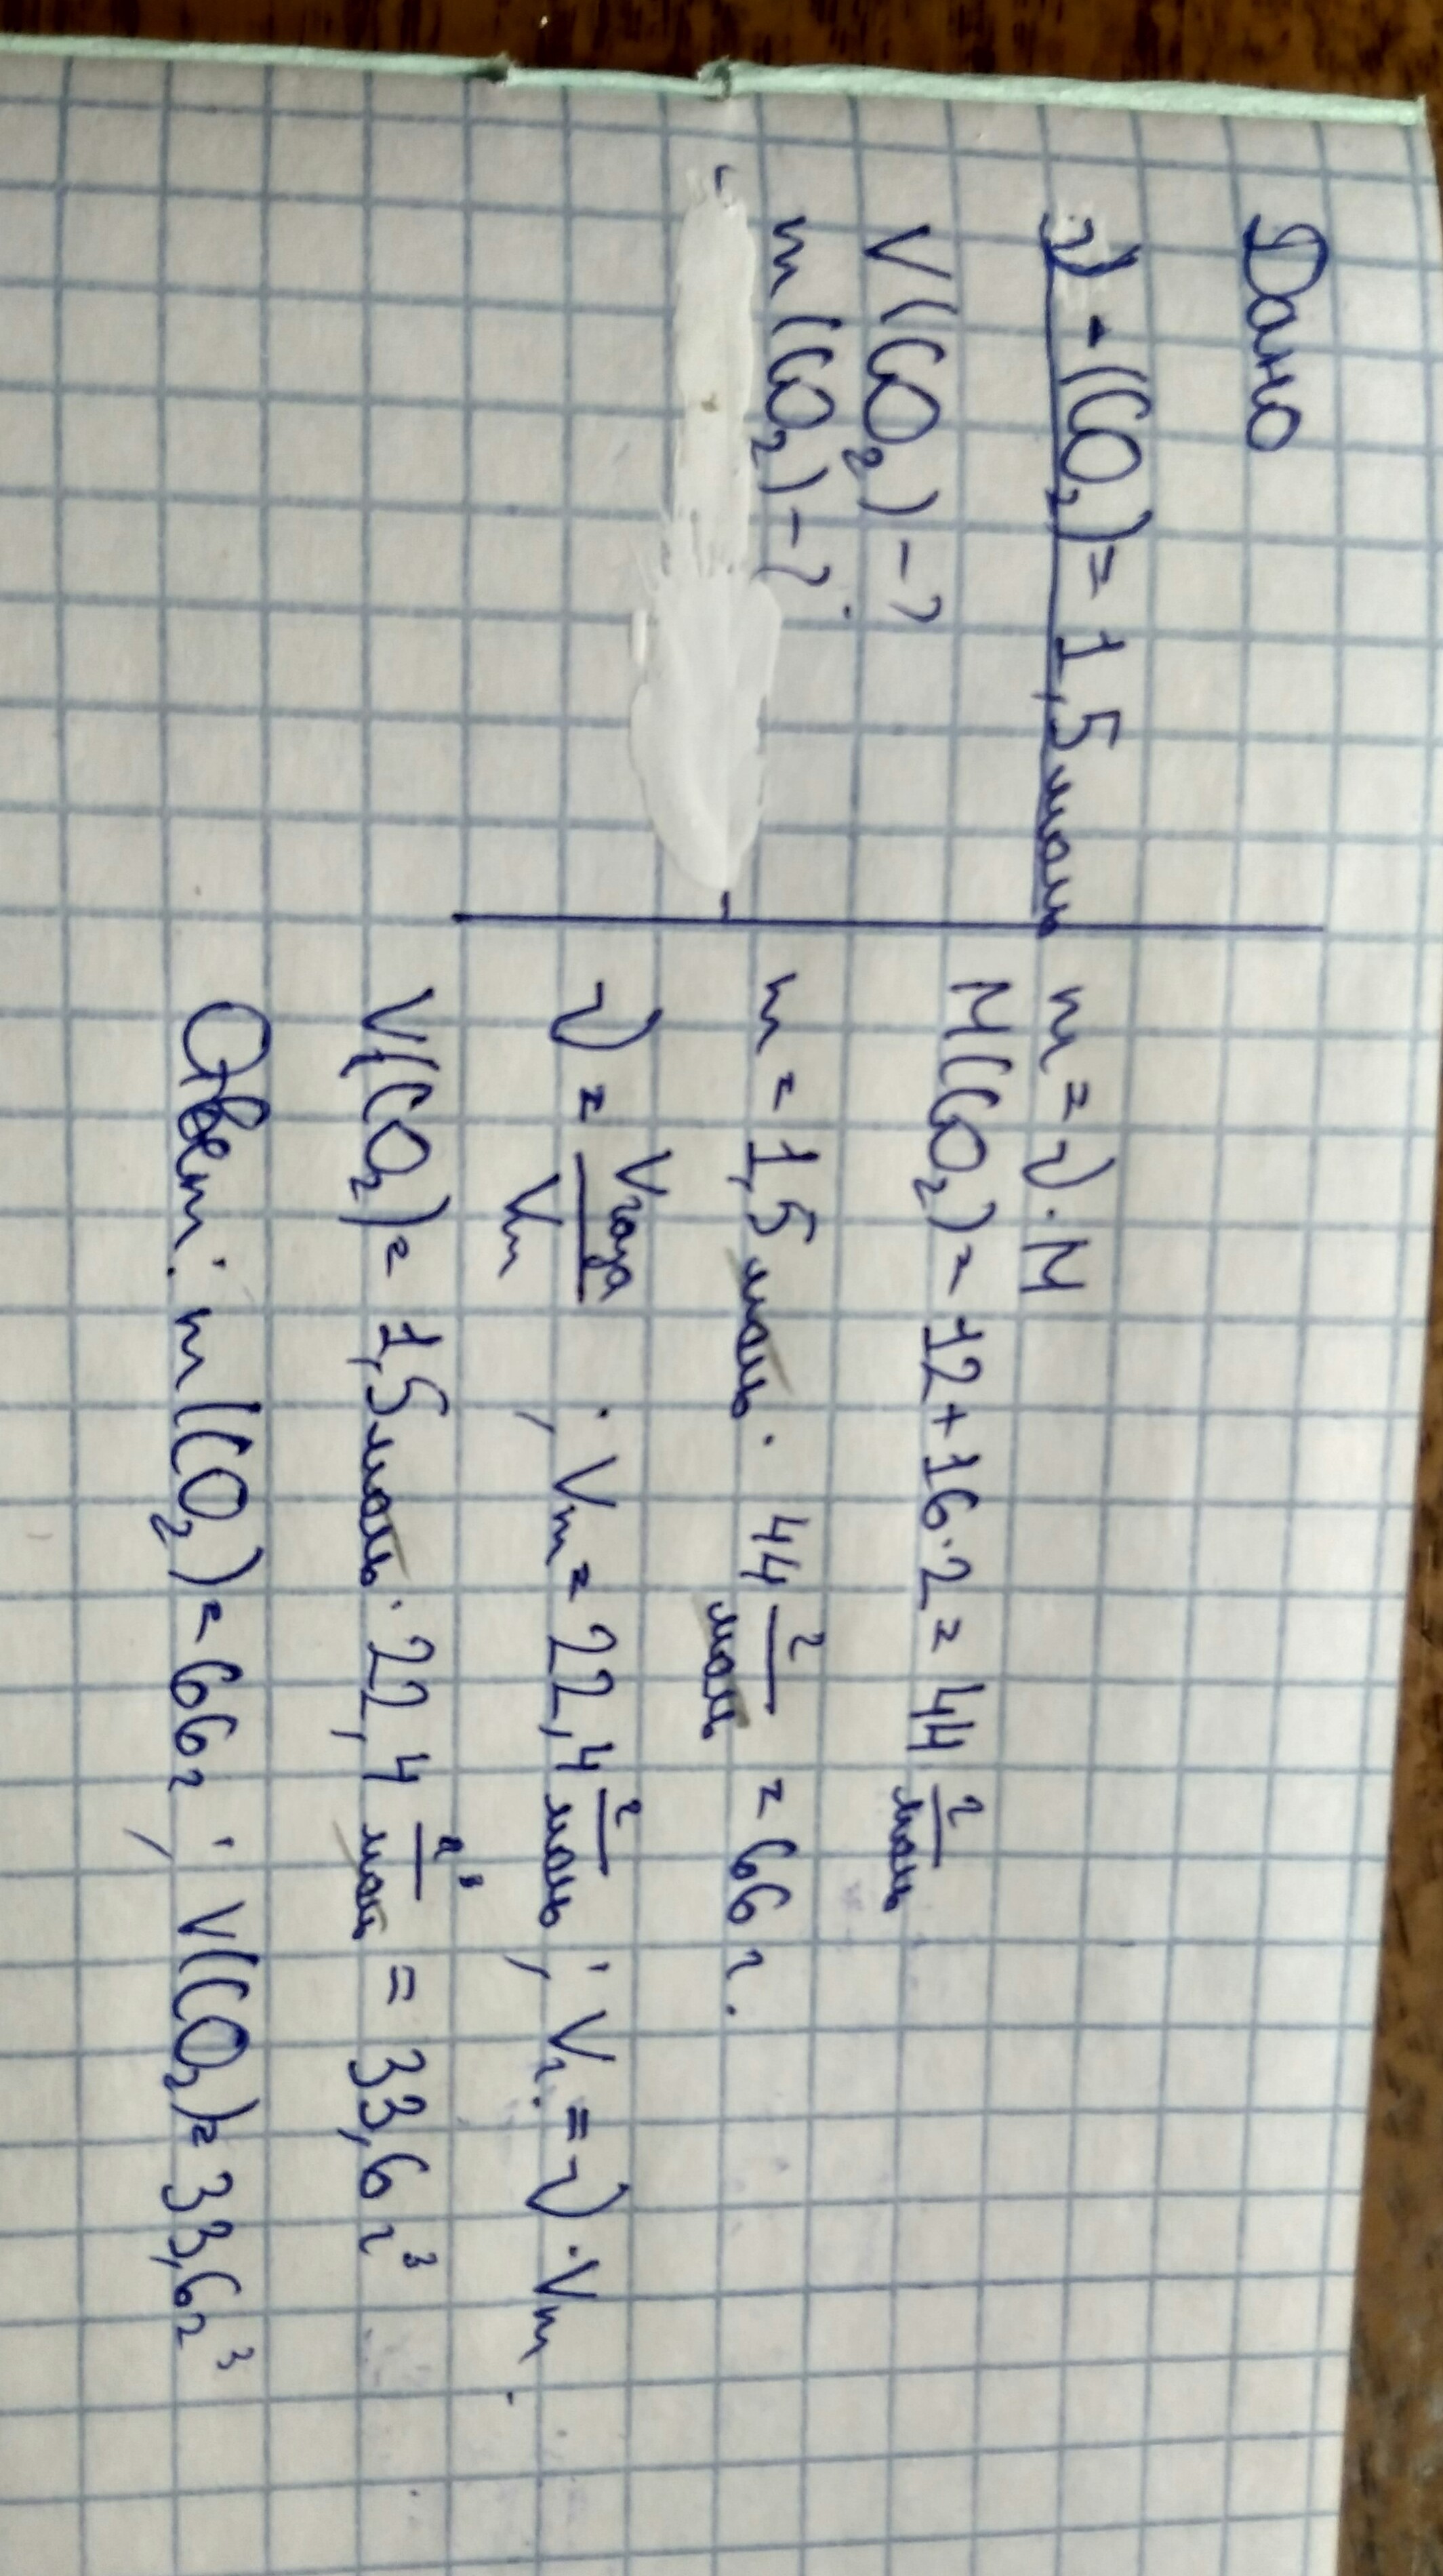 Дано
ν - (CO₂) = 1,5 моль
V(CO₂) - ?
m(CO₂) - ?
m = ν · M
M(CO₂) = 12 + 16 · 2 = 44 г/моль
m = 1,5 моль · 44 г/моль = 66 г.
ν = Vгаза/Vm ; Vm = 22,4 г/моль ; Vг. = ν · Vm
V(CO₂) = 1,5 моль · 22,4 г³/моль = 33,6 г³
Ответ: m(CO₂) = 66 г ; V(CO₂) = 33,6 г³